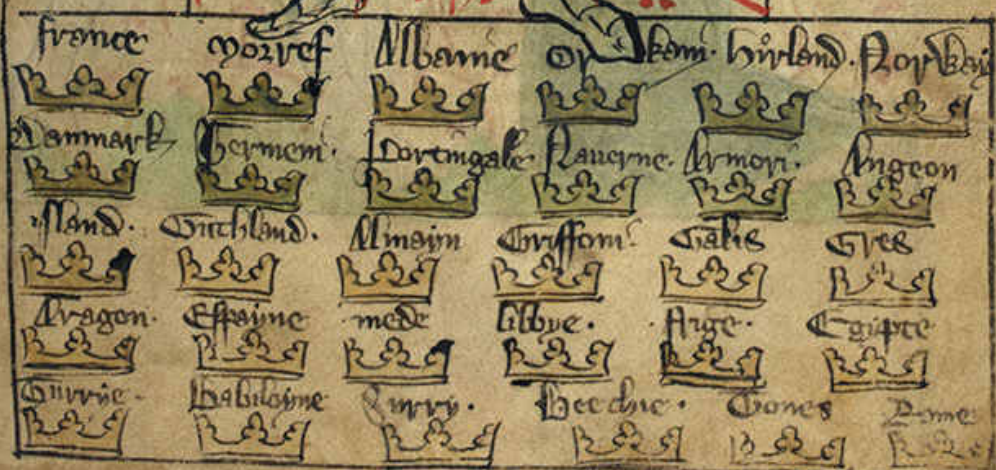 france Norref Albanie Or kani. hirland. Norway
Danmark Germeni. Portingale Nauerne. Armori. Angeon
island. Guthland. Almain Griffoni. Galis Gres
Aragon. Espayne mede libbye. Arge. Egipte
Surrye. Babiloyne Turry. Beechie. Gones Rome